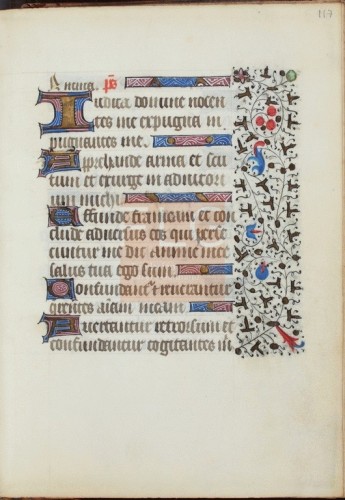 167
Iudica domine nocen
tes me expugna im
pugnantes me.
Apprehende arma et scu
tum et exurge in adiutori
um michi
Effunde frameam et con
clude adversus eos qui perse
cuntur me dic anime mee
salus tua ego sum.
Confundant et revereantur
querentes aiam meam
Avertantur retrorsum et
confundantur cogitantes m